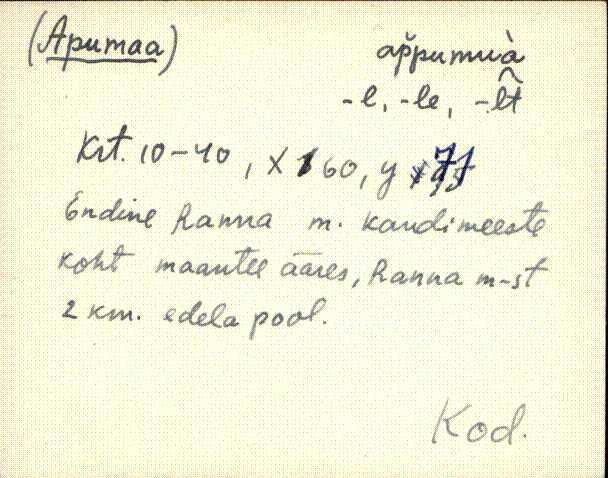 (Apumaa) ap̆pumuà
-l, -le, -l͡t
Krt. 10-40, x 160, y 77
Endine Ranna m. kandimeeste
koht maantee ääres, Ranna m-st
2 km. edela pool.
Kod.